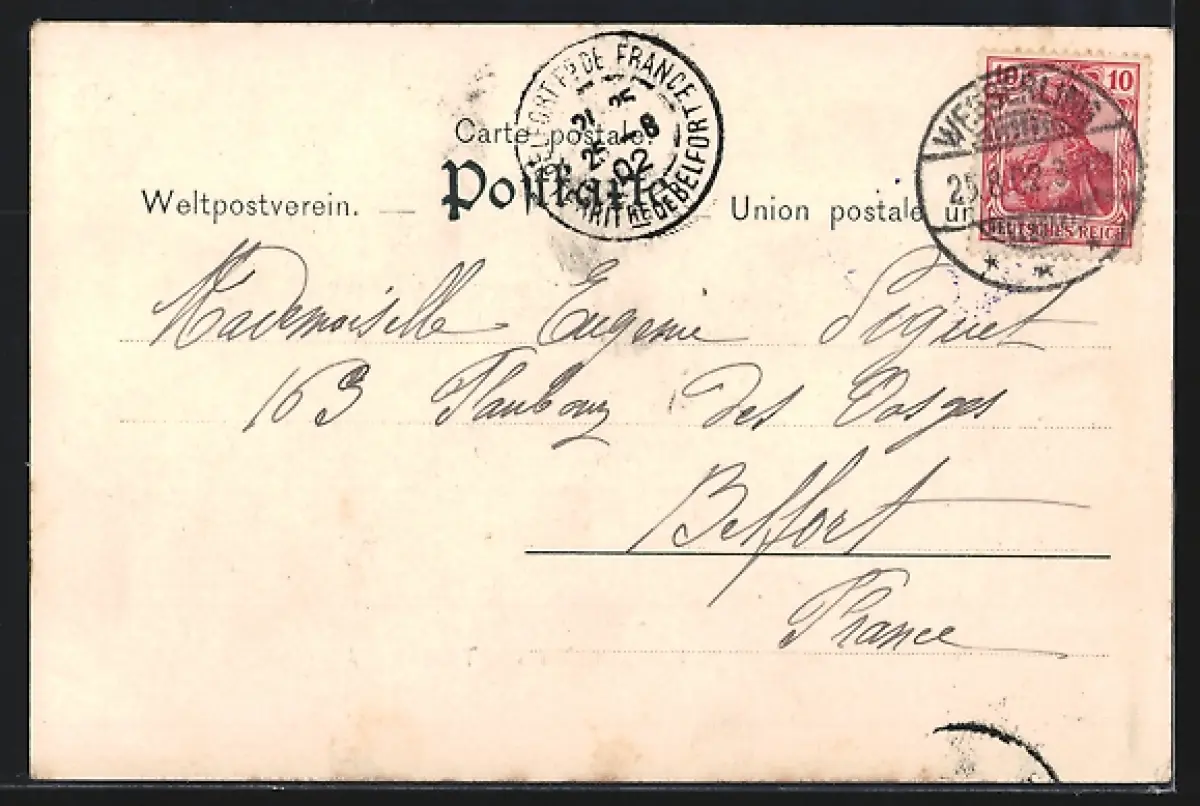 Carte postale.
Postkarte
Weltpostverein. — — Union postale un
10 10
DEUTSCHES REICH
WESSERLING
25.8.02.3
BELFORT Tre DE FRANCE TRRITre DE BELFORT
21 25
25 -8
02
Mademoiselle Eugenie Piguet
163 Faubourg des Vosges
Belfort
France